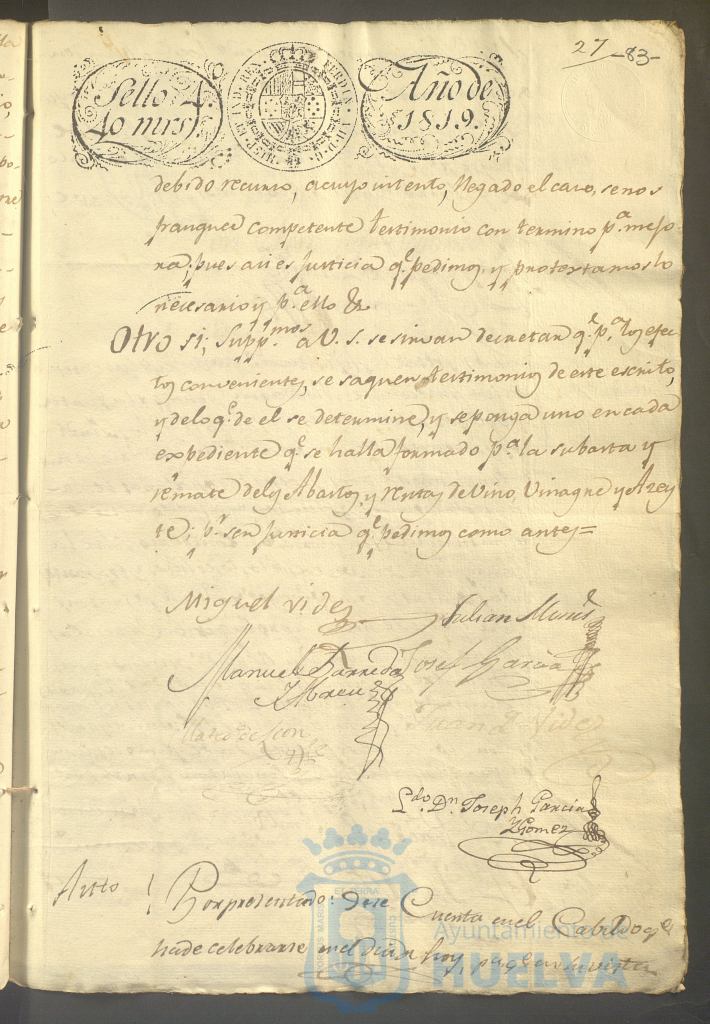 27 -83-
Sello 4.º
40 mrs
HISP. ET IND. REX. FERDIN. VII. D. G.
Año de
1819.
debido recurso, a cuyo intento, llegado el caso, se nos
franqueé competente testimonio con termino p.ª mejo-
ra; pues asi es justicia q.e pedimos, y protextamos lo
necesario y p.ª ello &.
Otro si; Supp.mos a V. S. se sirvan decretar q.e p.ª los efec
tos convenientes, se saquen testimonios de este escrito,
y de lo q.e de el se determine, y se ponga uno en cada
expediente q.e se halla formado p.ª la subasta y
remate de los Abastos y rentas de Vino, Vinagre y Azey
te; p.r ser justicia q.e pedimos como antes=
Miguel Videz
Julian
Manuel Barreda Josef Garcia
Y Abreu
Juan Videz
L.do D.n Joseph Garcia
y Gomez
Auto Por presentado: Dese Cuenta en el Cabildo q.e
ha de celebrarse en el dia de hoy,
Ayuntamiento de
HUELVA